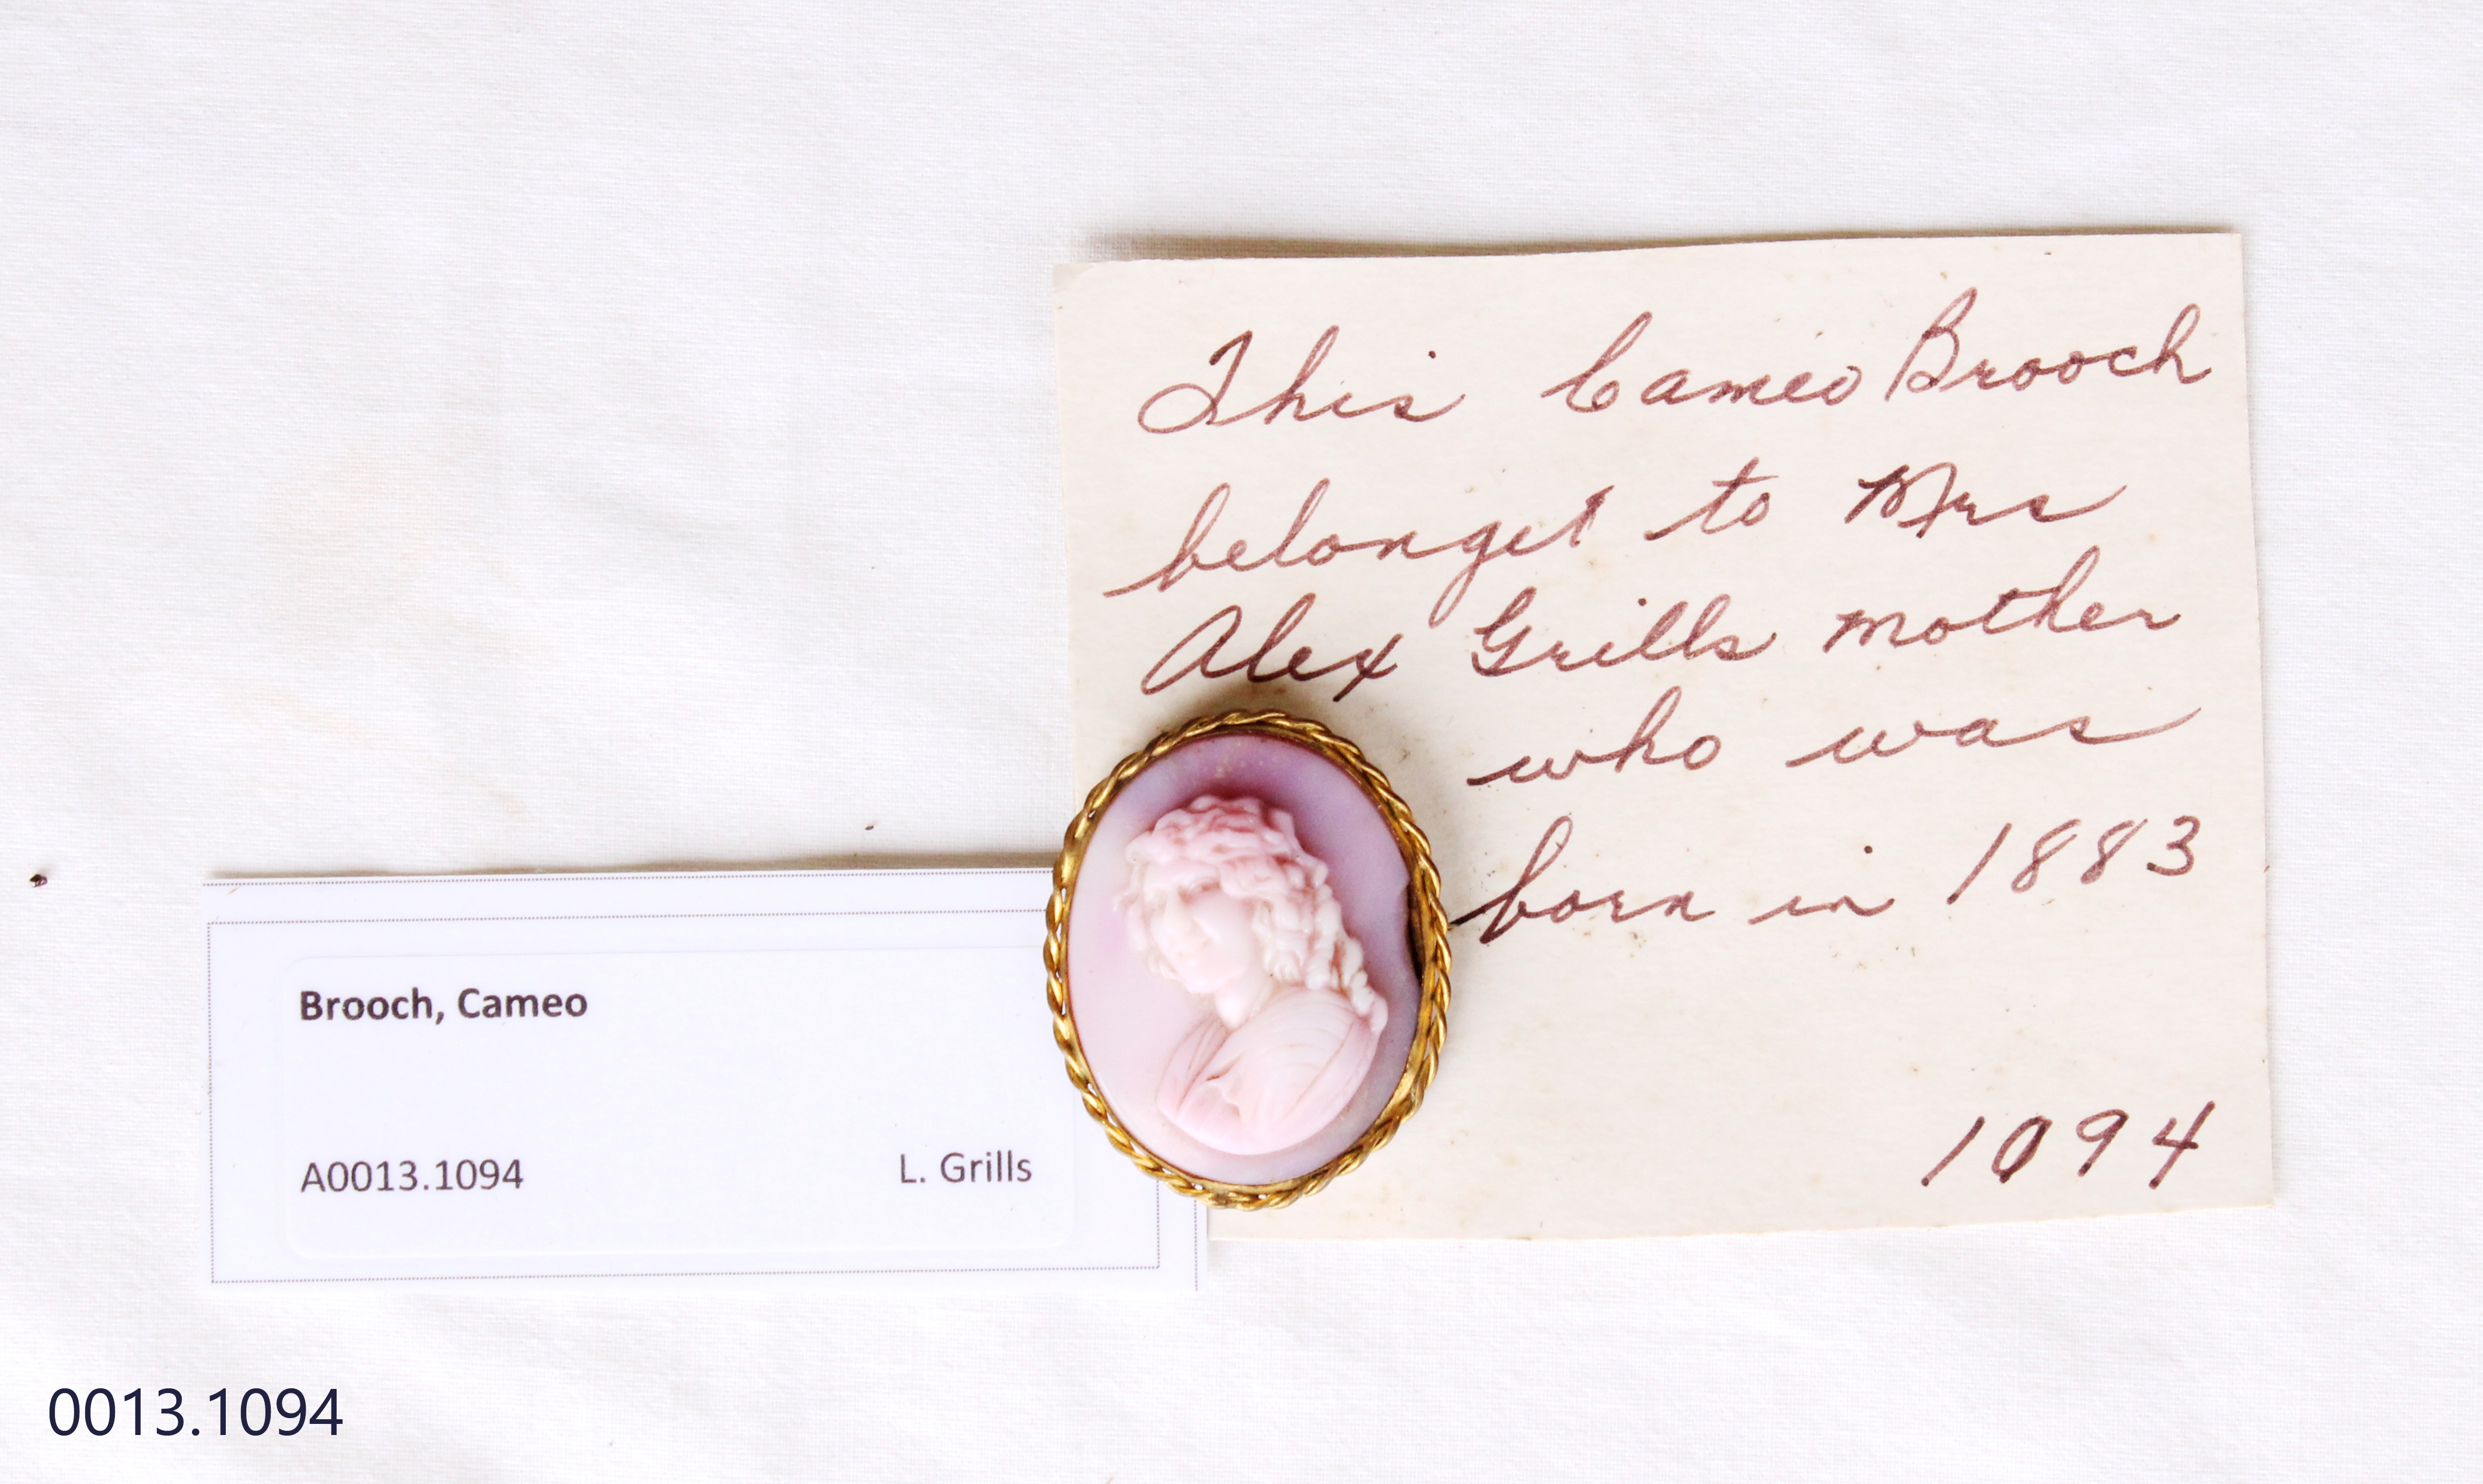 This Cameo Brooch
belonget to Mrs
Alex Grills mother
who was
born in 1883
1094
Brooch, Cameo
A0013.1094 L. Grills
0013.1094